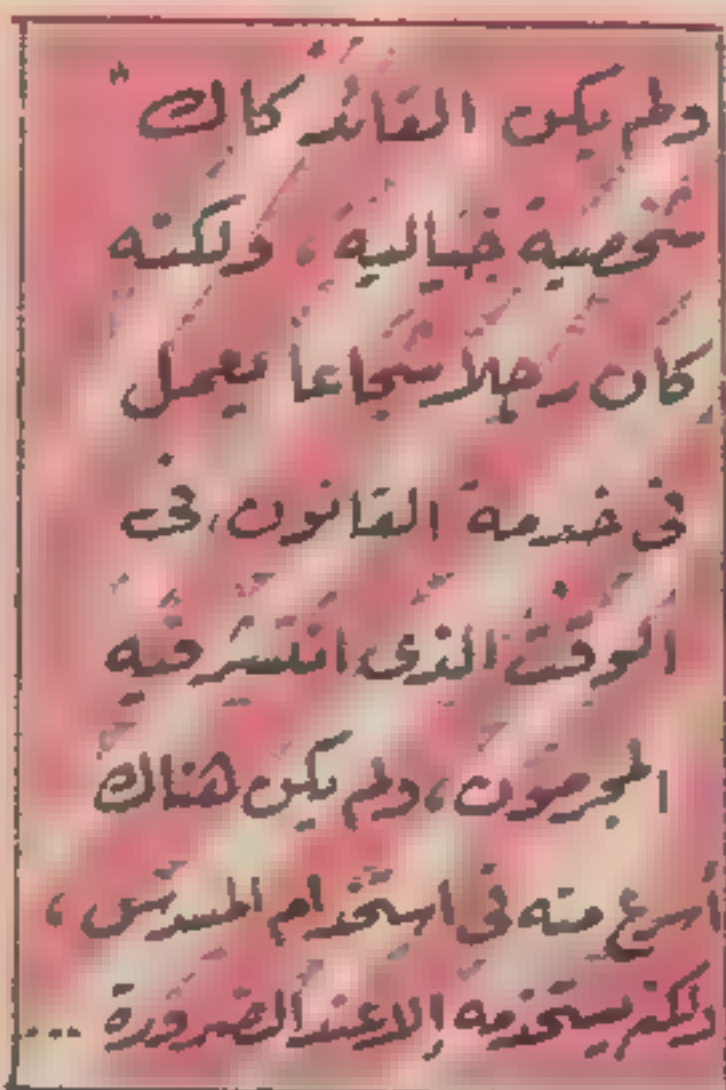 ولم يكن القائد كاك "
شخصية خيالية ، ولكنه
كان رجلا شجاعا يعمل
فى خدمة القانون، فى
الوقت الذى انتشر فيه
المجرمون، ولم يكن هناك
أسرع منه فى استخدام المسدس ،
ولكنه يستخدمه إلا عند الضرورة ...